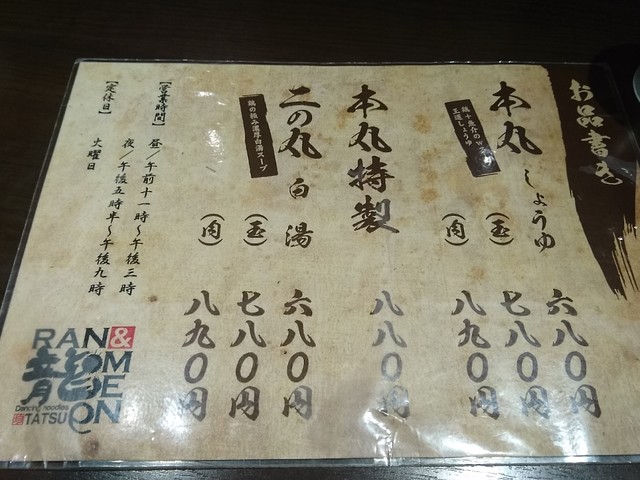 お品書き
本丸 しょうゆ 六八〇円
鶏＋魚介のWスープ
王道しょうゆ
(玉) 七八〇円
(肉) 八九〇円
本丸特製 八八〇円
二の丸 白湯 六八〇円
鶏の極み濃厚白湯スープ
(玉) 七八〇円
(肉) 八九〇円
【営業時間】 昼／午前十一時～午後三時
夜／午後五時半～午後九時
【定休日】 火曜日
RAN&
OM
E
ON
Dancing noodles
TATSU